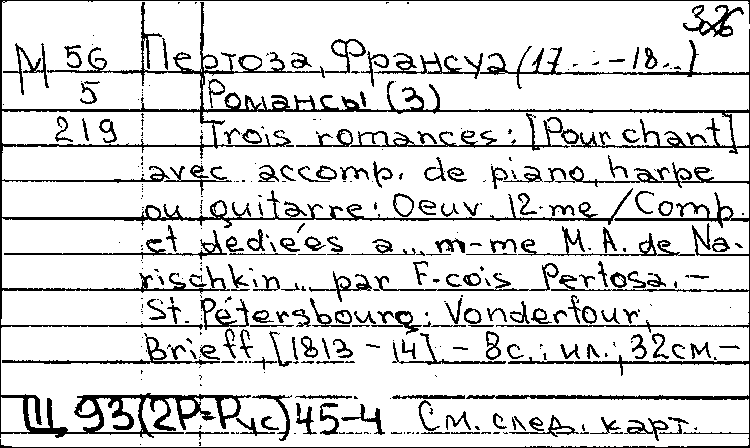 М 56 Пертоза, Франсуа (17...-18...)
5 Романсы (3)
219 Trois romances: [Pour chant]
avec accomp. de piano, harpe
ou guitarre: Oeuv. 12-me / Comp.
et dédiées a... m-me M. A. de Na-
rischkin... par F-cois Pertosa. —
St. Pétersbourg: Vonderfour,
Brieff, [1813 - 14]. - 8с.: ил.; 32см. —
Щ 93(2Р=Рус)45-4 См. след. карт.